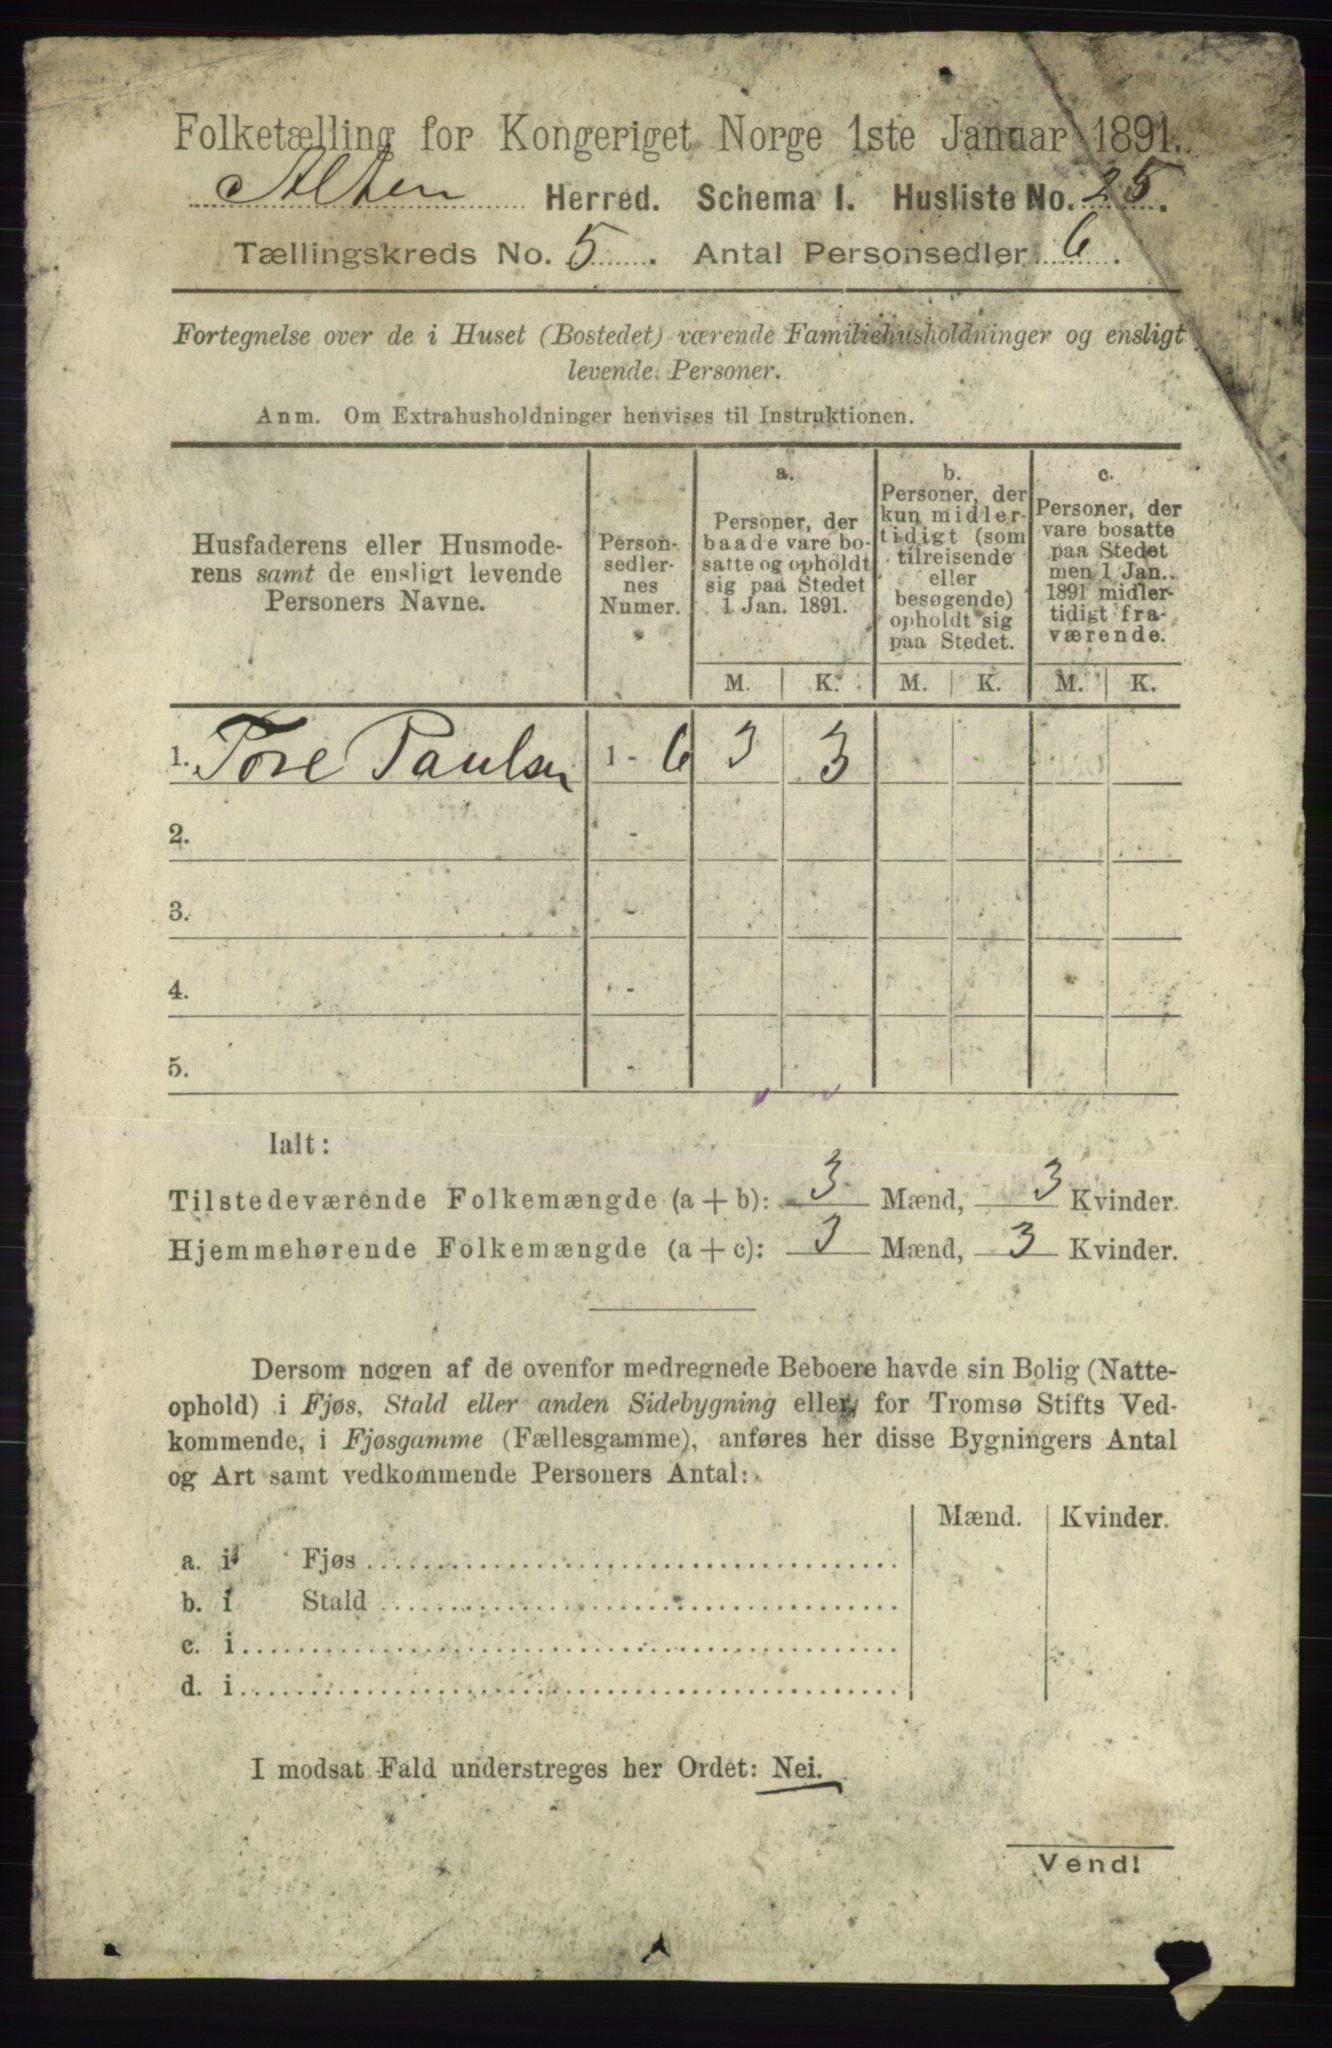 Folketælling for Kongeriget Norge 1ste Januar 1891.
Alten Herred. Schema I. Husliste No. 25.
Tællingskreds No. 5. Antal Personsedler 6.
Fortegnelse over de i Huset (Bostedet) værende Familiehusholdninger og ensligt
levende Personer.
Anm. Om Extrahusholdninger henvises til Instruktionen.
Husfaderens eller Husmode-
rens samt de ensligt levende
Personers Navne.
Person-
sedler-
nes
Numer.
a.
Personer, der
baade vare bo-
satte og opholdt
sig paa Stedet
1 Jan. 1891.
b.
Personer, der
kun midler-
tidigt (som
tilreisende
eller
besøgende)
opholdt sig
paa Stedet.
c.
Personer, der
vare bosatte
paa Stedet
men 1 Jan.
1891 midler-
tidigt fra-
værende.
M. K. M. K. M. K.
1. Tore Paulsen 1 - 6 3 3
2. -
3. -
4. -
5. -
Ialt:
Tilstedeværende Folkemængde (a + b): 3 Mænd, 3 Kvinder.
Hjemmehørende Folkemængde (a + c): 3 Mænd, 3 Kvinder.
Dersom nogen af de ovenfor medregnede Beboere havde sin Bolig (Natte-
ophold) i Fjøs, Stald eller anden Sidebygning eller, for Tromsø Stifts Ved-
kommende, i Fjøsgamme (Fællesgamme), anføres her disse Bygningers Antal
og Art samt vedkommende Personers Antal:
Mænd. Kvinder.
a. i Fjøs
b. i Stald
c. i
d. i
I modsat Fald understreges her Ordet: Nei.
Vend!